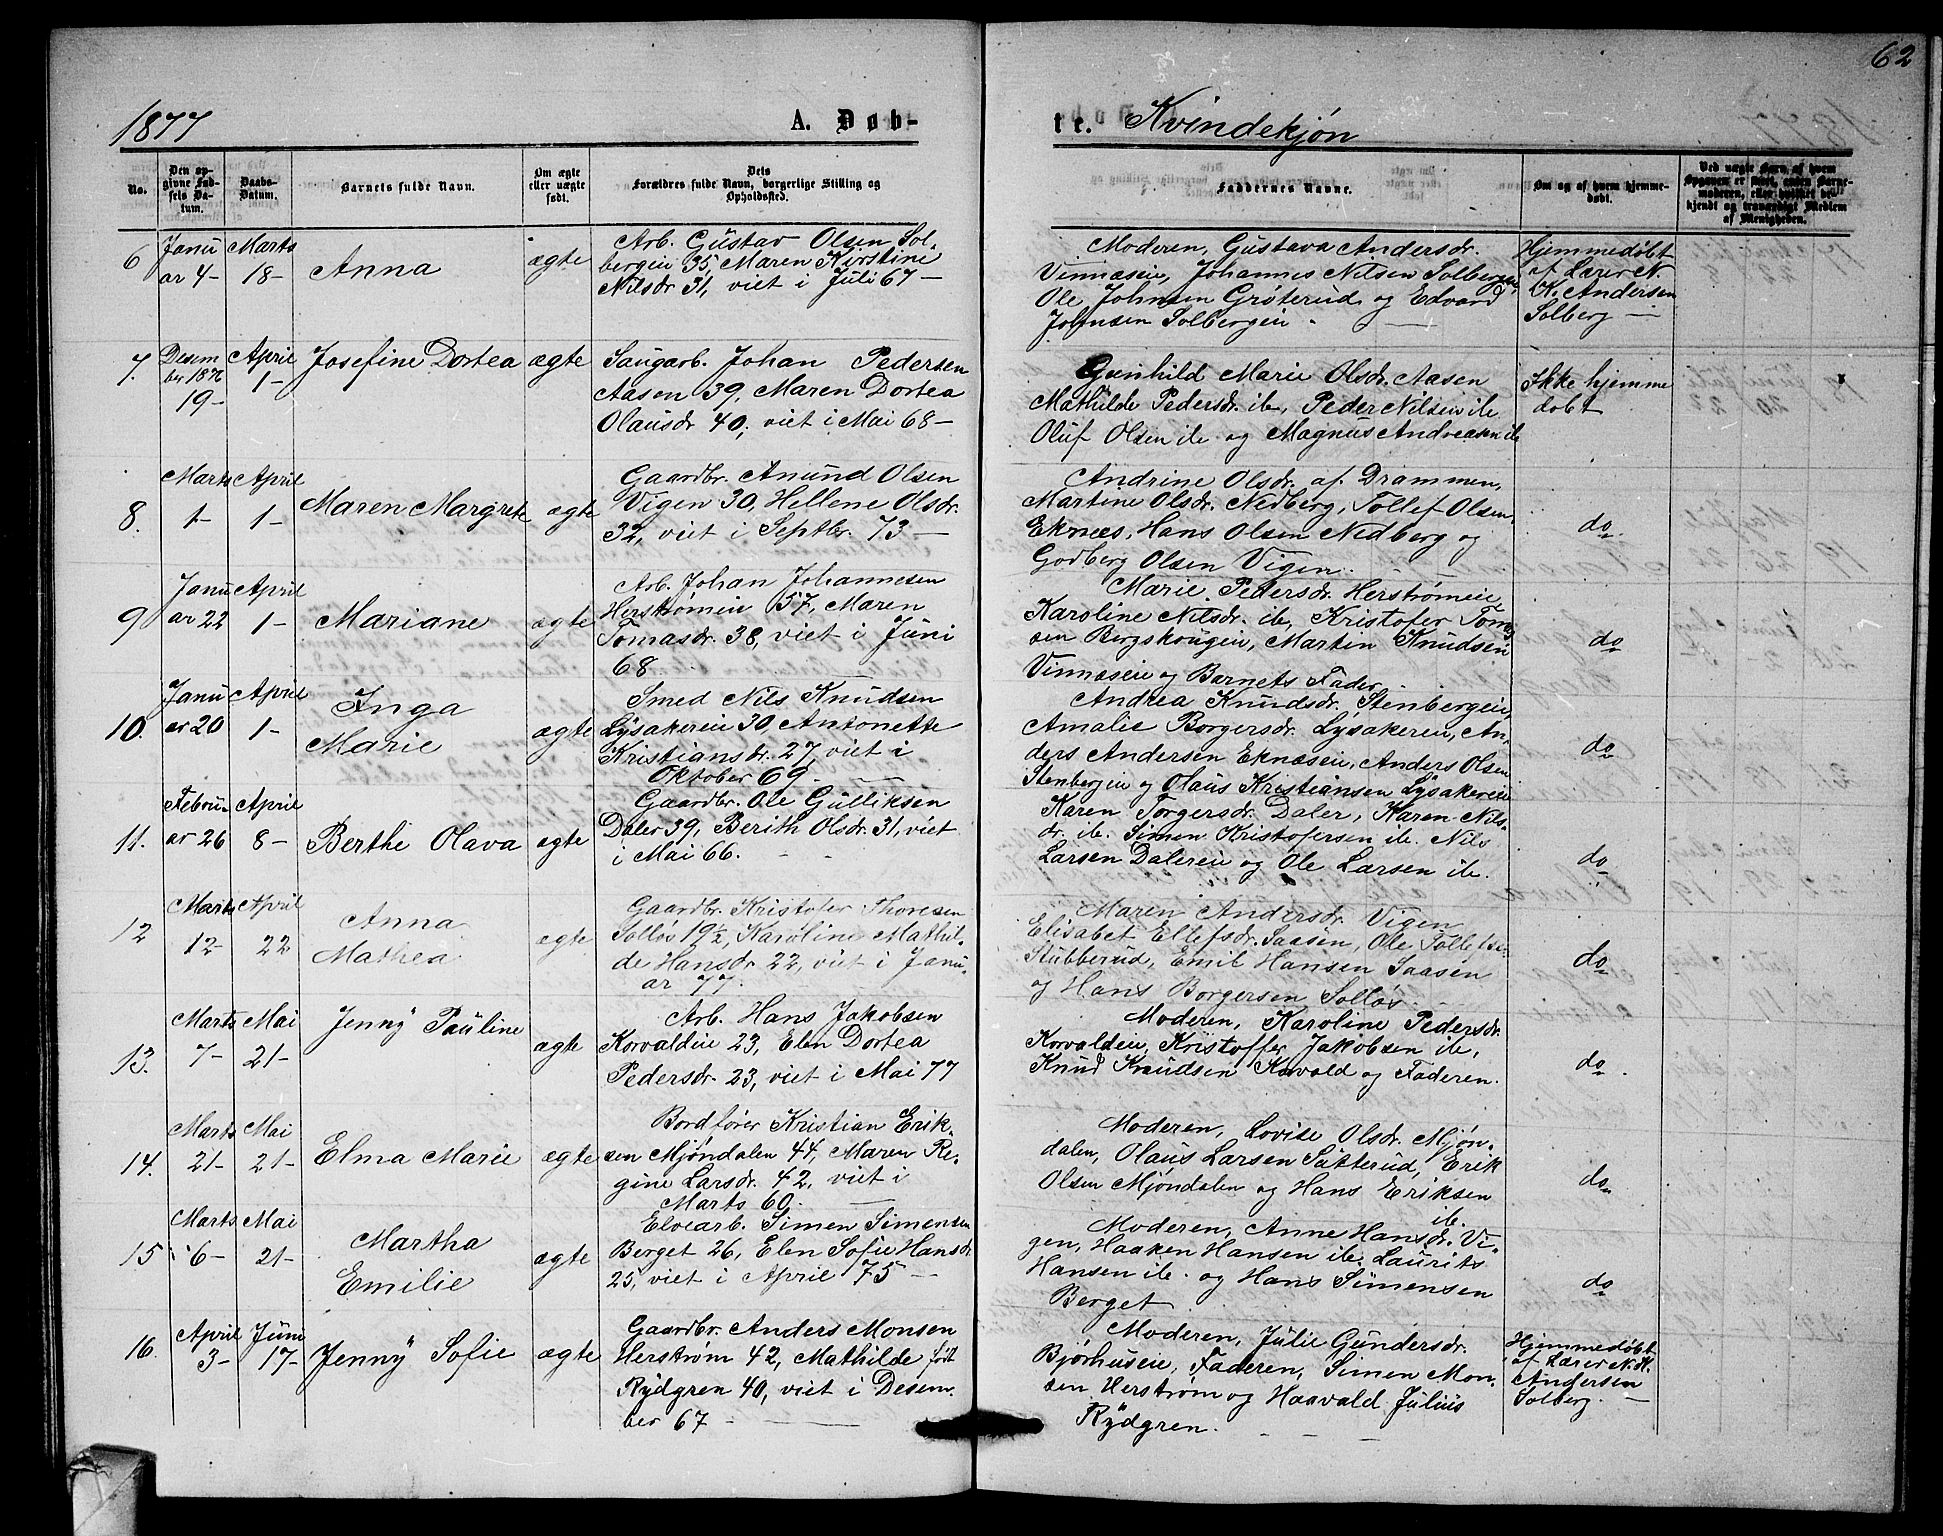 62
1877
A. Døb-
te. Kvindekjøn
No.
Den op-
givne Fød-
sels Da-
tum.
Daabs-
Datum.
Barnets fulde Navn.
Om ægte
eller uægte
født.
Dets
Forældres fulde Navn, borgerlige Stilling og
Opholdssted.
Faddernes Navne.
Om og af hvem hjemme-
døbt.
Ved uægte Barn af hvem
Opgaven er skeet, enten Barne-
moderen, eller hvilket be-
kjendt og troværdigt Medlem
af Menigheden.
6
Janu
ar 4-
Marts
18-
Anna
ægte
Arb. Gustav Olsen Sol-
bergeie 35, Maren Kirstine
Nilsdr 31, viet i Juli 67 —
Moderen, Gustava Andersdr.
Vinnæseie, Johannes Nilsen Solbergeie,
Ole Johnsen Grøterud og Edvard
Johnsen Solbergeie.
Hjemmedøbt
af Lærer N.
K. Andersen
Solberg —
7.
Desem
ber 1876
19-
April
1-
Josefine Dortea
ægte
Saugarb. Johan Pedersen
Aasen 39, Maren Dortea
Olausdr 40, viet i Mai 68 —
Gunhild Marie Olsdr. Aasen
Mathilde Pedersdr. ib, Peder Nilsen ib
Oluf Olsen ib og Magnus Andreasen ib
Ikke hjemme
døbt
8.
Marts
1-
April
1-
Maren Margrete
ægte
Gaardbr. Anund Olsen
Vigen 30, Hellene Olsdr.
32, viet i Septbr. 73 —
Andrine Olsdr. af Drammen,
Martine Olsdr. Nedberg, Tollef Olsen
Eknæs, Hans Olsen Nedberg og
Godberg Olsen Vigen.
do.
9
Janu
ar 22
April
1-
Mariane
ægte
Arb. Johan Johannesen
Herstrømeie 57, Maren
Tomasdr. 38, viet i Juni
68
Marie Pedersdr. Herstrømeie
Karoline Nilsdr. ib, Kristofer Toma
sen Bergskougeie, Martin Knudsen
Vinnæseie og Barnets Fader.
do
10.
Janu
ar 20
April
1-
Inga
Marie
ægte
Smed Nils Knudsen
Lysakereie 30, Antonette
Kristiansdr. 27, viet i
Oktober 69 —
Andrea Knudsdr. Stenbergeie,
Amalie Borgersdr. Lysakereie, An-
ders Andersen Eknæseie, Anders Olsen
Stenbergeie og Olaus Kristiansen Lysakereie
do
11.
Febru
ar 26
April
8-
Berthe Olava
ægte
Gaardbr. Ole Gulliksen
Daler 39, Berith Olsdr. 31, viet
i Mai 66.
Karen Torgersdr. Daler, Karen Nils-
dr. ib. Simen Kristofersen ib. Nils
Larsen Dalereie og Ole Larsen ib.
do
12
Marts
12-
April
22
Anna
Mathea
ægte
Gaardbr. Kristofer Thoresen
Solløs 19½, Karoline Mathil-
de Hansdr. 22, viet i Janu-
ar 77.
Maren Andersdr. Vigen
Elisabet Ellefsdr. Saasen, Ole Tollefsen
Stubberud, Emil Hansen Saasen
og Hans Borgersen Solløs.
do
13.
Marts
7-
Mai
21-
Jenny Pauline
ægte
Arb. Hans Jakobsen
Korvaldeie 23, Elen Dortea
Pedersdr. 23, viet i Mai 77
Moderen, Karoline Pedersdr.
Korvaldeie, Kristoffer Jakobsen ib,
Knud Knudsen Kovald og Faderen.
do.
14.
Marts
21-
Mai
21-
Elma Marie
ægte
Bordfører Kristian Erik-
sen Mjøndalen 44, Maren Re-
gine Larsdr. 42, viet i
Marts 60.
Moderen, Lovise Olsdr. Mjøn-
dalen, Olaus Larsen Sätterud, Erik
Olsen Mjøndalen og Hans Eriksen
ib.
do
15
Marts
6-
Mai
21-
Martha
Emilie
ægte
Elvearb. Simen Simensen
Berget 26, Elen Sofie Hansdr
25, viet i April 75 —
Moderen, Anne Hansdr. Vi-
gen, Haaken Hansen ib. Laurits
Hansen ib. og Hans Simensen
Berget
do
16.
April
3-
Juni
17-
Jenny Sofie
ægte
Gaardbr. Anders Monsen
Herstrøm 42, Mathilde født
Rydgren 40, viet i Desem
ber 67 —
Moderen, Julie Gundersdr.
Bjørhuseie, Faderen, Simen Mon-
sen Herstrøm og Haavald Julius
Rydgren.
Hjemmedøbt
af Lærer N. K.
Andersen
Solberg. —